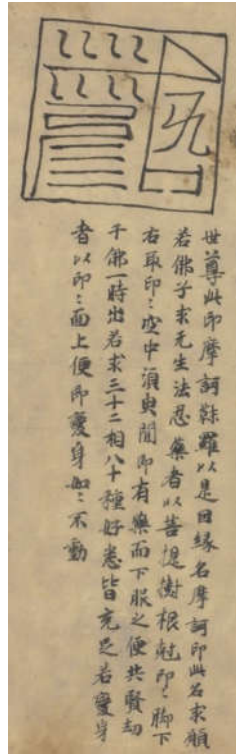 世尊此印摩訶䅉羅以是因緣名摩訶印此名求願
若佛子求无生法忍藥者以菩提樹根尅印〻脚下
右取印〻空中須臾間即有藥而下服之便共賢劫
千佛一時出若求三十二相八十種好悉皆充足若變身
者以印〻面上便即變身如〻不動